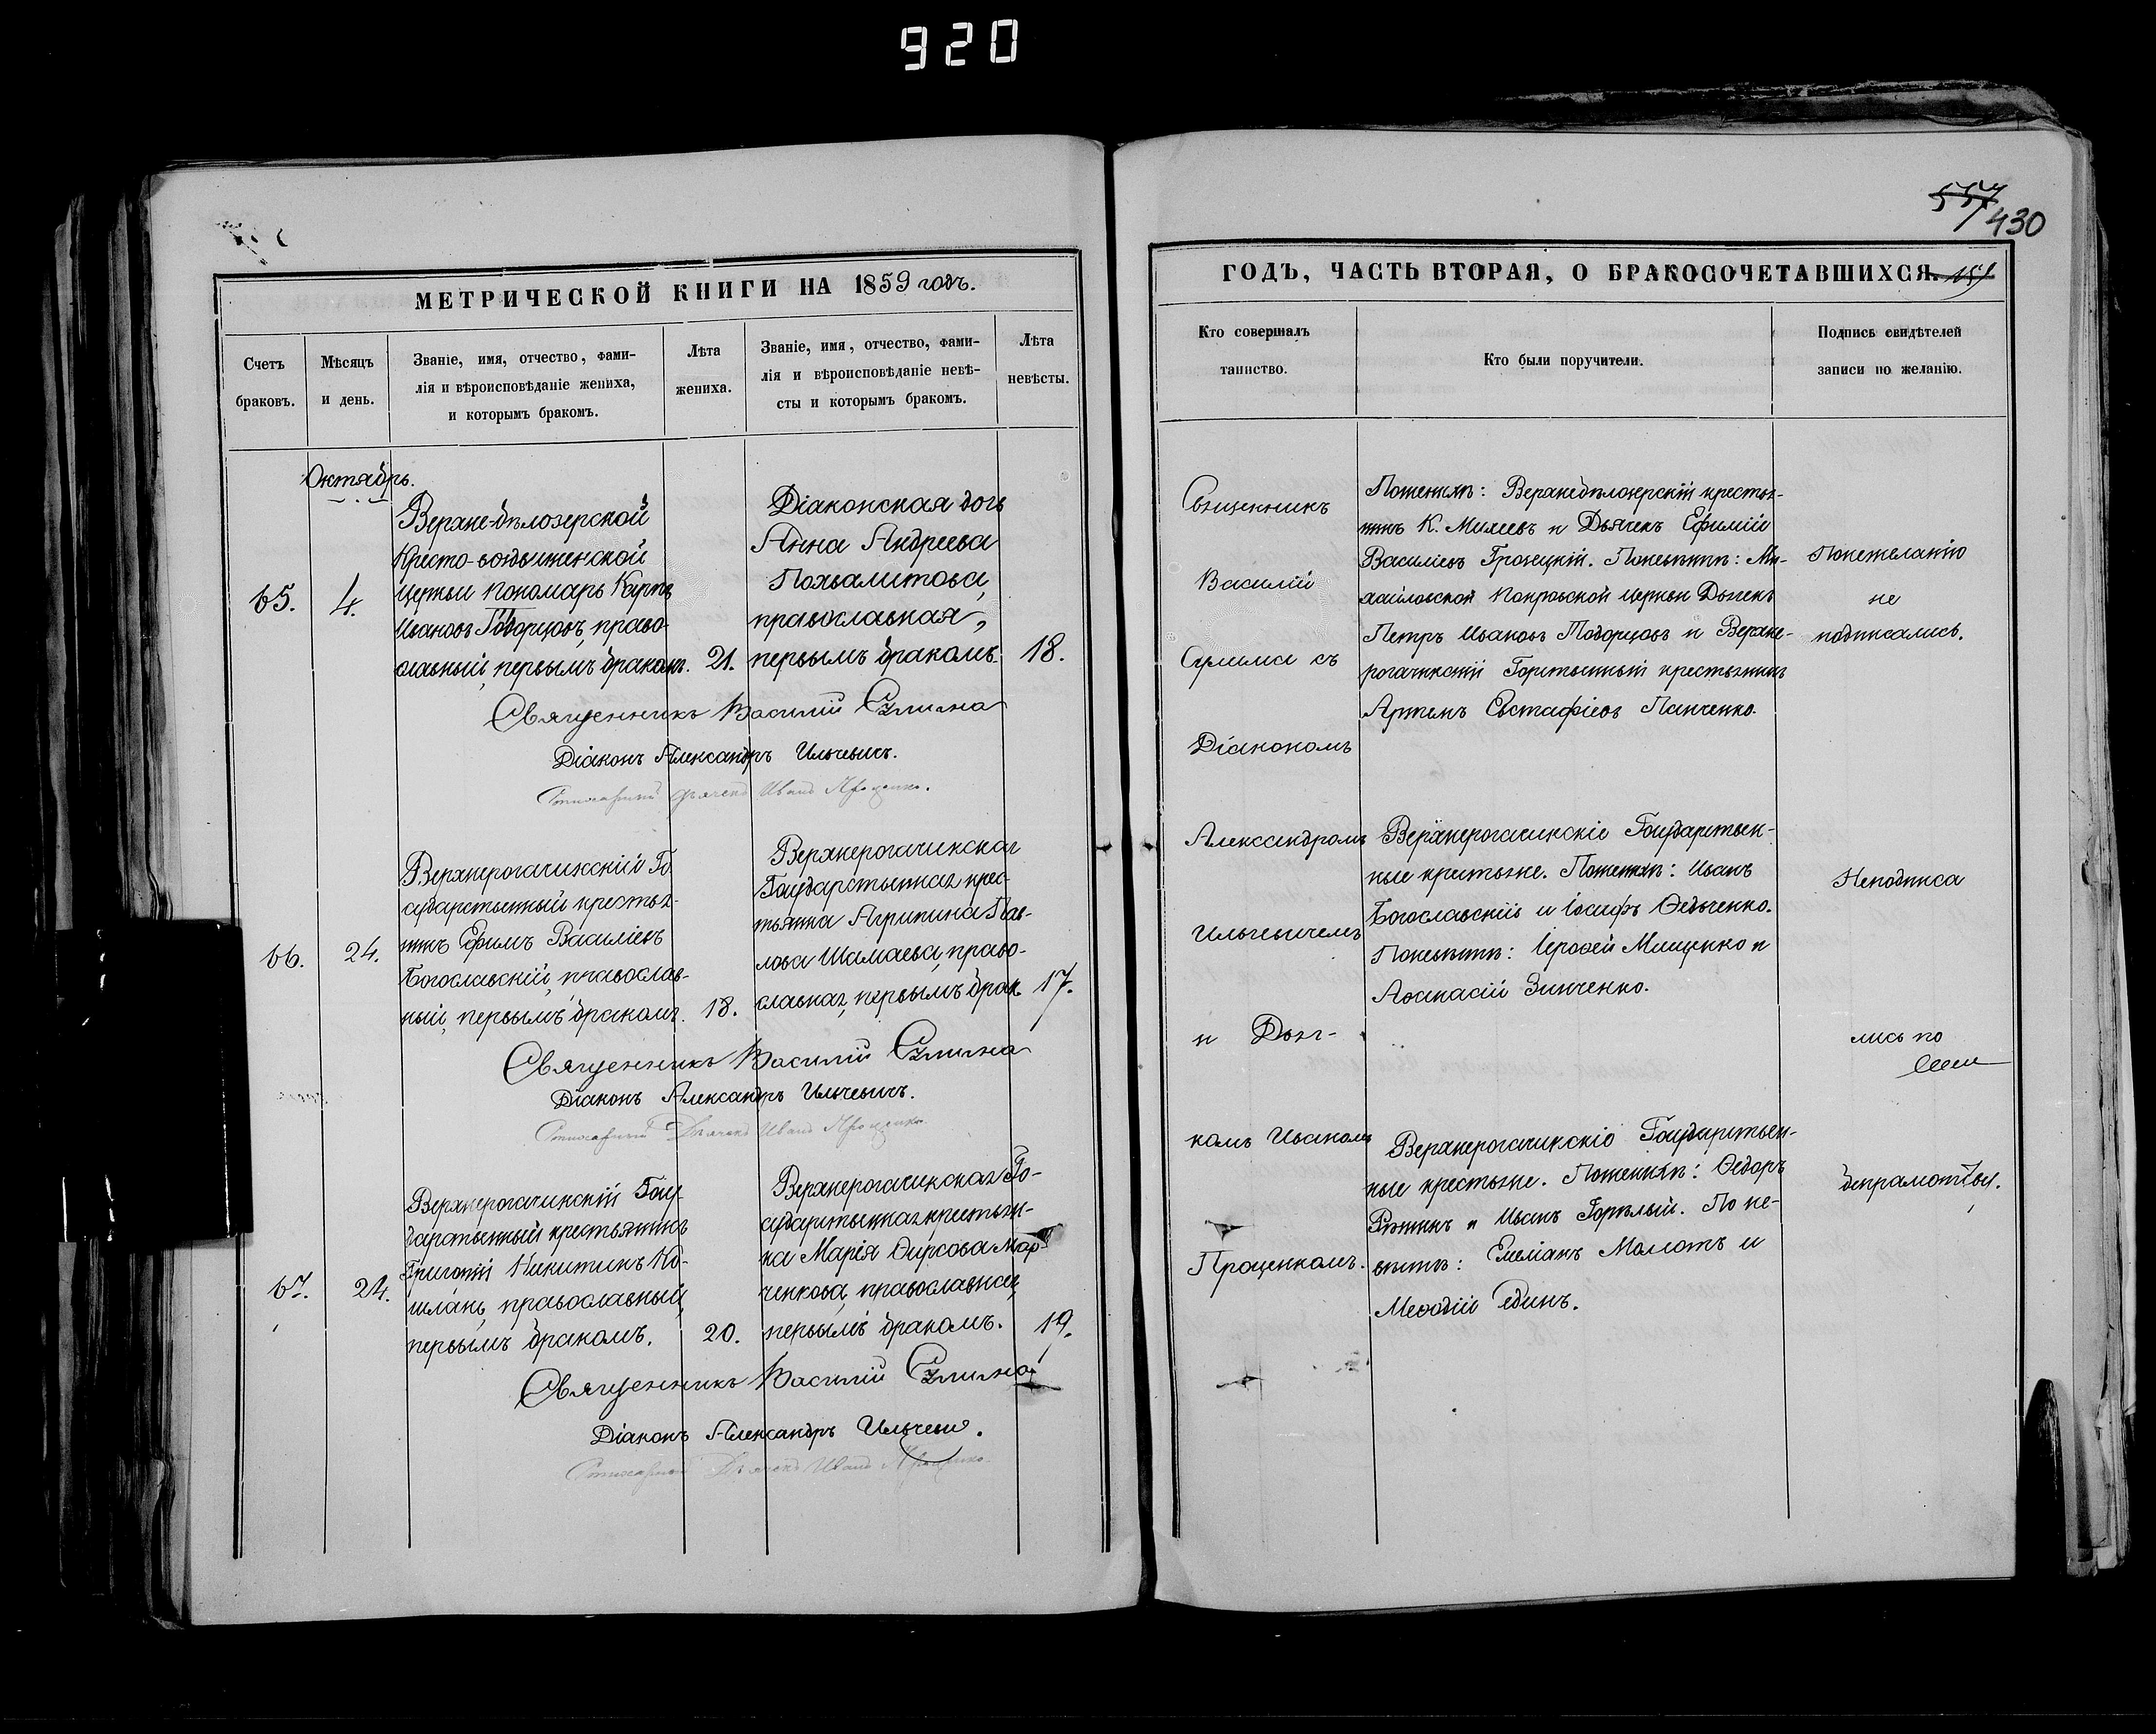 920
557
430
МЕТРИЧЕСКОЙ КНИГИ НА 1859 годъ.
Счетъ браковъ.
Мѣсяцъ и день.
Званіе, имя, отчество, фами-
лія и вѣроисповѣданіе жениха,
и которымъ бракомъ.
Лѣта жениха.
Званіе, имя, отчество, фами-
лія и вѣроисповѣданіе невѣ-
сты и которымъ бракомъ.
Лѣта невѣсты.
Октябрь.
65.
4.
Верхне-бѣлозерской
Кресто-воздвиженской
Церкви Пономарь Карпъ
Ивановъ Тодорцовъ, право-
славный, первымъ бракомъ.
21.
Діаконская дочь
Анна Андреева
Похвалитова,
православная,
первымъ бракомъ.
18.
Священникъ Василій
Діаконъ Александръ Ильчевичъ.
Дьячекъ Иванъ Проценко.
66.
24.
Верхнерогачикскій Го-
сударственный крестья-
нинъ Ефимъ Василіевъ
Богославскій, православ-
ный, первымъ бракомъ.
18.
Верхнерогачикская
Государственная крес-
тьянка Агрипина Пав-
лова Шамаева, право-
славная, первымъ брак.
17.
Священникъ Василій
Діаконъ Александръ Ильчевичъ.
Дьячекъ Иванъ Проценко.
67.
24.
Верхнерогачикскій Госу-
дарственный крестьянинъ
Григорій Никитинъ Ко-
шланъ, православный,
первымъ бракомъ.
20.
Верхнерогачикская Го-
сударственная крестьян-
ка Марія Фирсова Мар-
ченкова, православная,
первымъ бракомъ.
19.
Священникъ Василій
Діаконъ Александръ Ильчевич.
Дьячекъ Иванъ Проценко.
ГОДЪ, ЧАСТЬ ВТОРАЯ, О БРАКОСОЧЕТАВШИХСЯ.
Кто совершалъ
таинство.
Кто были поручители.
Подпись свидѣтелей
записи по желанію.
Священникъ
Василій
съ
Діакономъ
Александромъ
Ильчевичемъ
и Дьяч-
комъ Иваномъ
Проценкомъ.
Поженихѣ: Верхнебѣлозерскій крестья-
нинъ К. Михеевъ и Дьячекъ Ефимій
Василіевъ Троицкій. Поневѣстѣ: Ми-
хайловской Покровской Церкви Дьячекъ
Петръ Ивановъ Тодорцовъ и Верхне-
рогачикскій Государственный крестьянинъ
Артемъ Евстафіевъ Панченко.
Понежеланію
не
подписались.
Верхнерогачикскіе Государствен-
ные крестьяне. Поженихѣ: Иванъ
Богославскій и Іосифъ Федьченко.
Поневѣстѣ: Іерофей Мищенко и
Аѳанасій Зинченко.
Неподписа
лись по
Верхнерогачикскіе Государствен-
ные крестьяне. Поженихѣ: Ѳедоръ
и Иванъ Горѣлый. По не-
вѣстѣ: Емеліанъ Молотъ и
Меѳодій Единъ.
безграмотству.